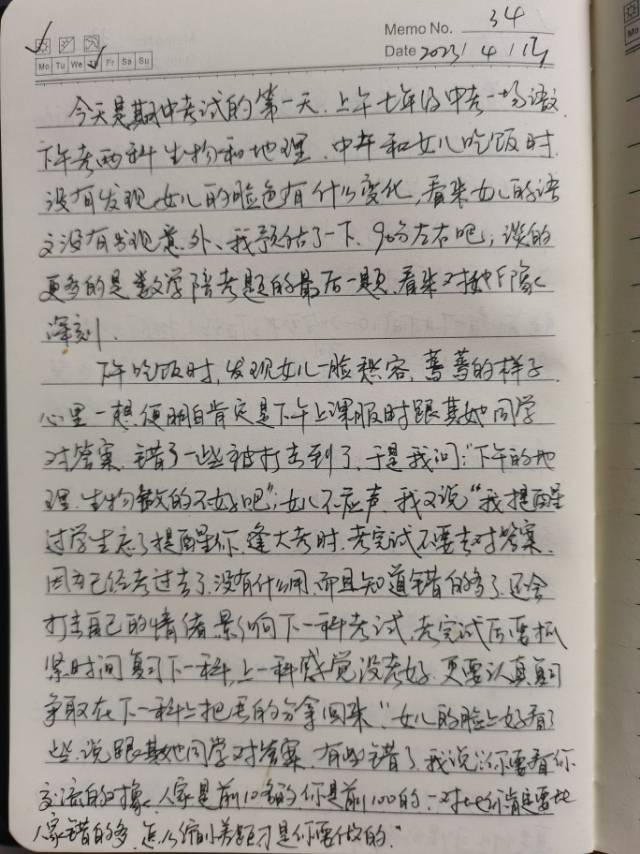 Memo No. 34
Mo Tu We Fr Sa Su
Date 2023/4/
今天是期中考试的第一天.上午七年级中考一场语文
下午考两科生物和地理.中午和女儿吃饭时.
没有发现女儿的脸色有什么变化,看来女儿的语
文没有出现意外、我预估了一下.90分左右吧;谈的
更多的是数学陪考题的最后一题.看来对她印象
深刻.
下午吃饭时,发现女儿一脸愁容,蔫蔫的样子.
心里一想便明白肯定是下午上课服时跟其她同学
对答案.错了一些被打击到了.于是我问:“下午的地
理.生物做的不好吧”;女儿不应声.我又说“我提醒
过学生忘了提醒你.逢大考时.考完试不要去对答案.
因为已经考过去了.没有什么用.而且知道错的多了.还会
打击自己的情绪.影响下一科考试.考完试后要抓
紧时间复习下一科,上一科感觉没考好.更要认真复习
争取在下一科上把丢的分拿回来.”女儿的脸上好看了
些.说跟其她同学对答案.有些错了.我说:你要看你
交流的对像.人家是前10名的你是前100的.一对比你肯定要比
人家错的多.怎么缩小差距才是你要做的.”